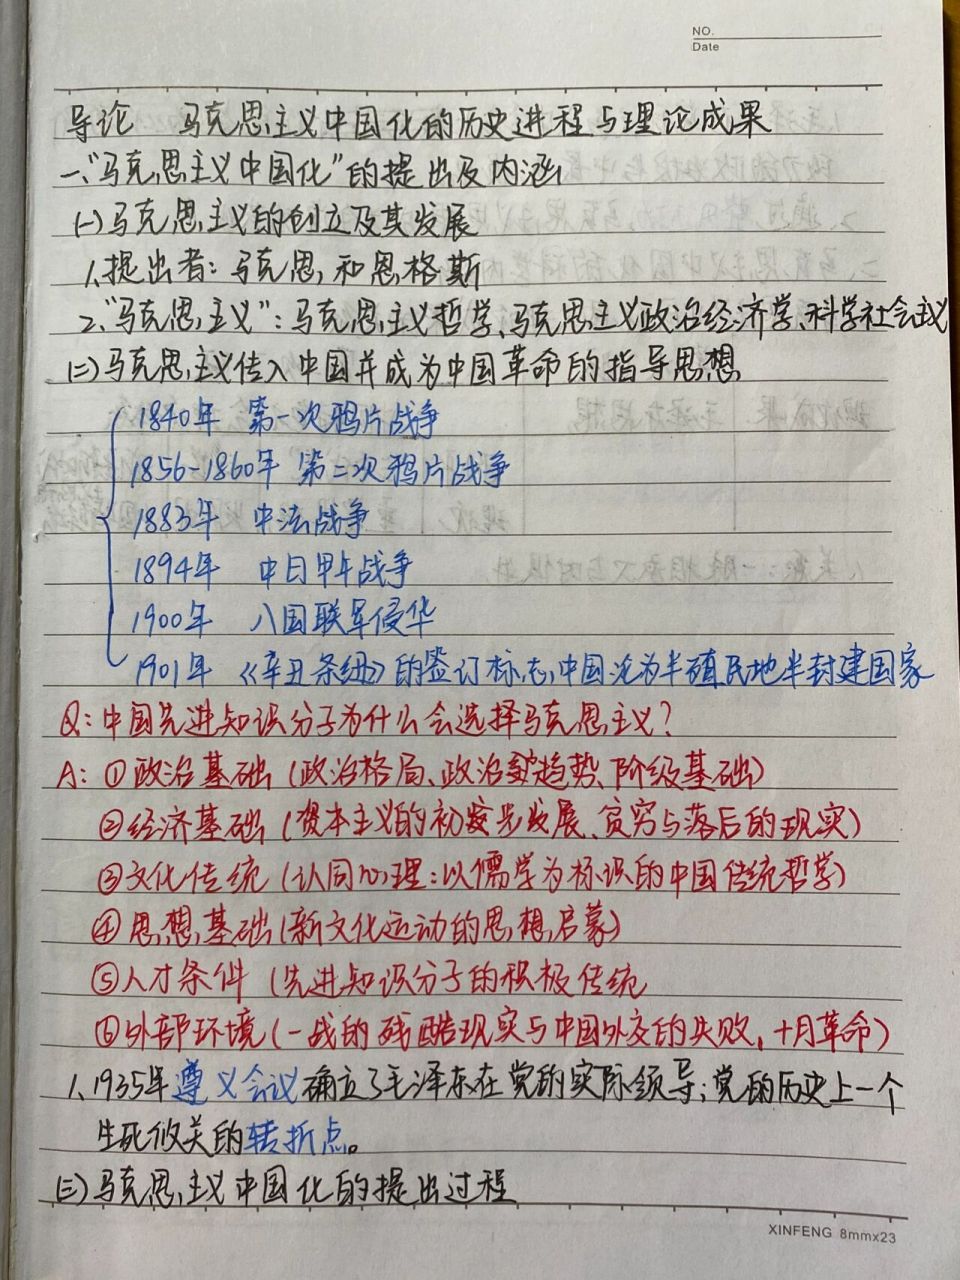 NO.
Date
导论 马克思主义中国化的历史进程与理论成果
一、“马克思主义中国化”的提出及内涵
(一)马克思主义的创立及其发展
1、提出者：马克思和恩格斯
2、“马克思主义”：马克思主义哲学、马克思主义政治经济学、科学社会主义
(二)马克思主义传入中国并成为中国革命的指导思想
1840年 第一次鸦片战争
1856-1860年 第二次鸦片战争
1883年 中法战争
1894年 中日甲午战争
1900年 八国联军侵华
1901年 《辛丑条约》的签订标志中国沦为半殖民地半封建国家
Q：中国先进知识分子为什么会选择马克思主义？
A：①政治基础（政治格局、政治趋势、阶级基础）
②经济基础（资本主义的初步发展、贫穷与落后的现实）
③文化传统（认同心理：以儒学为标识的中国传统哲学）
④思想基础（新文化运动的思想启蒙）
⑤人才条件（先进知识分子的积极传统
⑥外部环境（一战的残酷现实与中国外交的失败，十月革命）
1、1935年遵义会议确立了毛泽东在党的实际领导；党的历史上一个
生死攸关的转折点。
(三)马克思主义中国化的提出过程
XINFENG 8mmx23